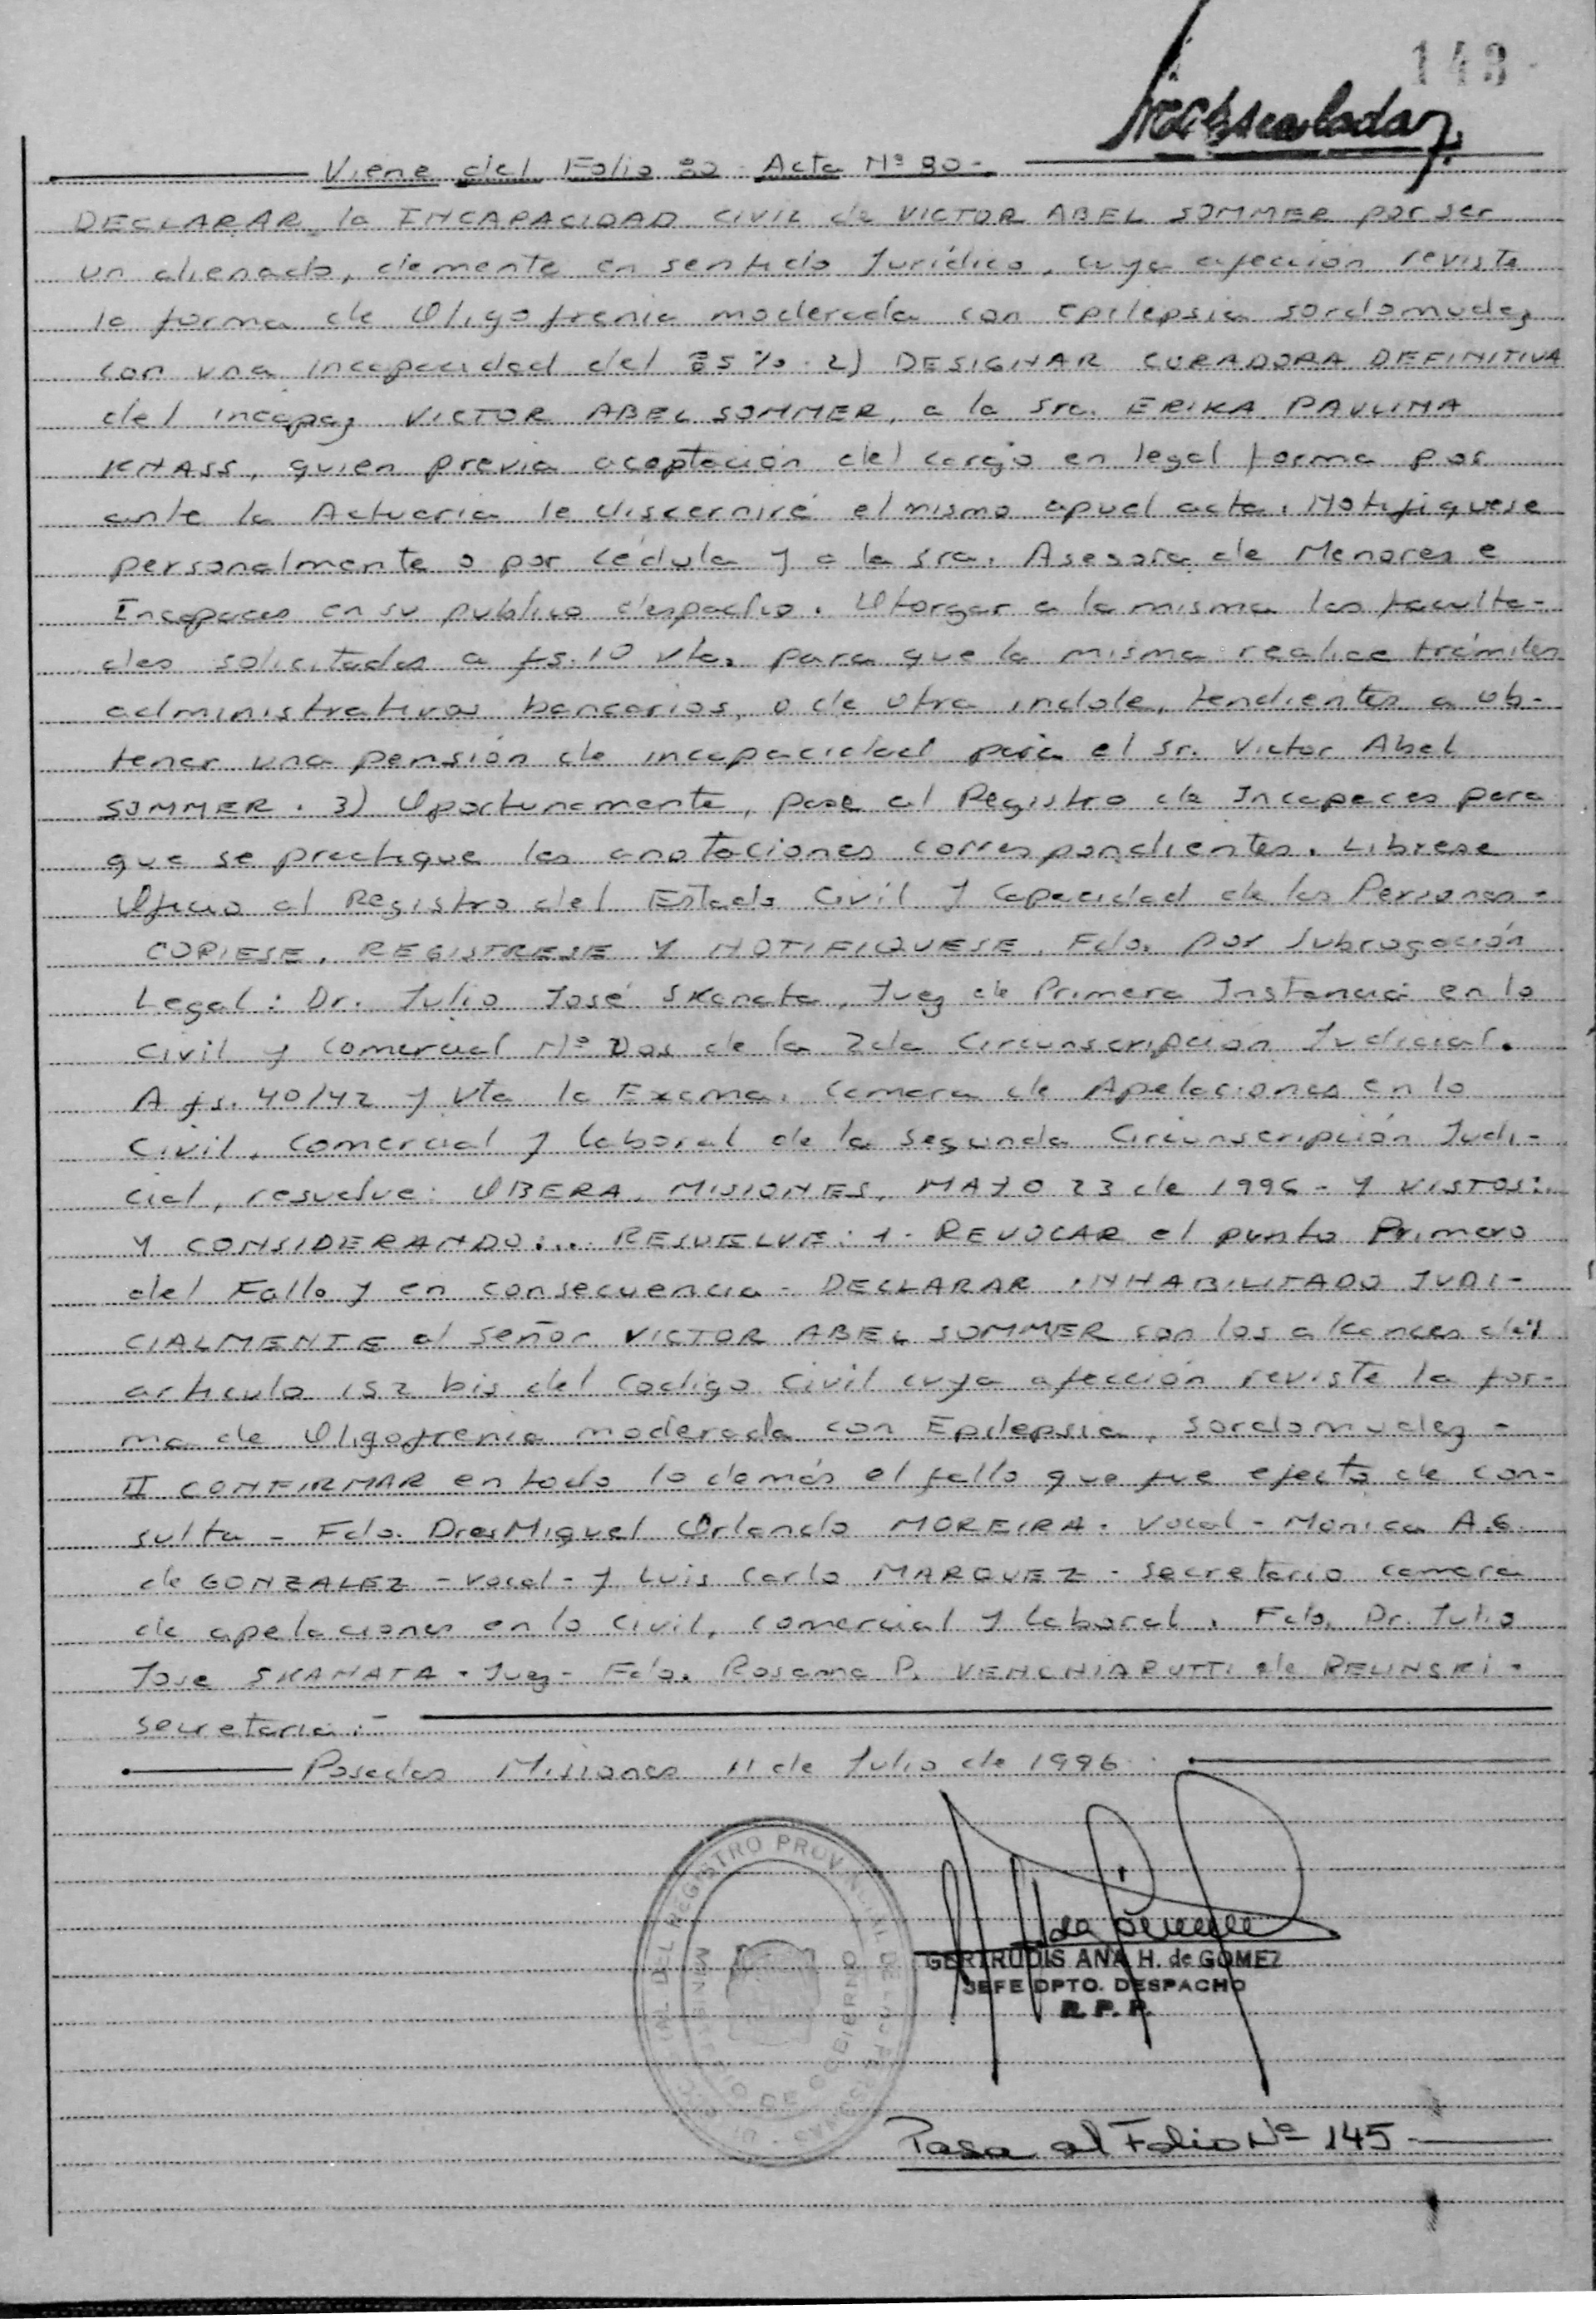 143
Viene del Folio 80 Acta Nº 80-
DECLARAR la INCAPACIDAD CIVIL de VICTOR ABEL SOMMER por ser
un alienado, demente en sentido Jurídico, cuya afección reviste
la forma de Oligofrenia moderada con Epilepsia sordomudez
con una incapacidad del 85%. 2) DESIGNAR CURADORA DEFINITIVA
del incapaz VICTOR ABEL SOMMER, a la Sra. ERIKA PAULINA
KNASS, quien previa aceptación del cargo en legal forma por
ante la Actuaria le discerniré el mismo apud acta. Notifiquese
personalmente o por cédula y a la Sra. Asesora de Menores e
Incapaces en su publico despacho. Otorgar a la misma las faculta-
des solicitadas a fs. 10 vta. para que la misma realice trámites
administrativos bancarios, o de otra indole, tendientes a ob-
tener una pensión de incapacidad para el Sr. Victor Abel
SOMMER. 3) Oportunamente, pase al Registro de Incapaces para
que se practique las anotaciones correspondientes. Librese
Oficio al Registro del Estado Civil y Capacidad de las Personas-
COPIESE, REGISTRESE Y NOTIFIQUESE. Fdo. por Subrogación
Legal: Dr. Julio José Skanata, Juez de Primera Instancia en lo
Civil y Comercial Nº Dos de la 2da Circunscripción Judicial.
A fs. 40/42 y Vta la Excma. Camara de Apelaciones en lo
Civil, Comercial y Laboral de la Segunda Circunscripción Judi-
cial, resuelve: OBERA, MISIONES, MAYO 23 de 1996 - Y VISTOS:.
Y CONSIDERANDO:.. RESUELVE: 1- REVOCAR el punto Primero
del Fallo y en consecuencia - DECLARAR INHABILITADO JUDI-
CIALMENTE al señor VICTOR ABEL SOMMER con los alcances del
articulo 152 bis del Codigo Civil cuya afección reviste la for-
ma de Oligofrenia moderada con Epilepsia, sordomudez -
II CONFIRMAR en todo lo demás el fallo que fue efecto de con-
sulta - Fdo. Dres Miguel Orlando MOREIRA - Vocal - Monica A.G.
de GONZALEZ - Vocal - y Luis Carlo MARQUEZ - Secretario Camara
de apelaciones en lo Civil, Comercial y Laboral. Fdo. Dr. Julio
Jose SKANATA - Juez - Fdo. Rosanna P. VENCHIARUTTI de RELINSKI -
Secretaria.-
Posadas Misiones 11 de Julio de 1996
DEL REGISTRO PROVINCIAL DE LAS PERSONAS
MINISTERIO DE GOBIERNO
GERTRUDIS ANA H. de GOMEZ
JEFE DPTO. DESPACHO
R. P. P.
Pasa al Folio Nº 145